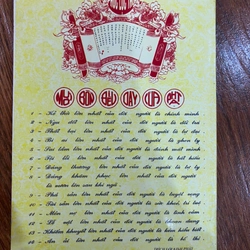 MƯỜI BỐN ĐIỀU DẠY CỦA PHẬT
1 - Kẻ thù lớn nhất của đời người là chính mình
2 - Ngu dốt lớn nhất của đời người là dối trá
3 - Thất bại lớn nhất của đời người là tự đại
4 - Bi ai lớn nhất của đời người là ghen tỵ
5 - Sai lầm lớn nhất của đời người là đánh mất mình
6 - Tội lỗi lớn nhất của đời người là bất hiếu
7 - Đáng thương lớn nhất của đời người là tự ty
8 - Đáng khâm phục lớn nhất của đời người
là vươn lên sau khi ngã
9 - Phá sản lớn nhất của đời người là tuyệt vọng
10 - Tài sản lớn nhất của đời người là sức khỏe, trí tuệ
11 - Món nợ lớn nhất của đời người là tình cảm
12 - Lễ vật lớn nhất của đời người là khoan dung
13 - Khiếm khuyết lớn nhất của đời người là kém hiểu biết
14 - An ủi lớn nhất của đời người là bố thí